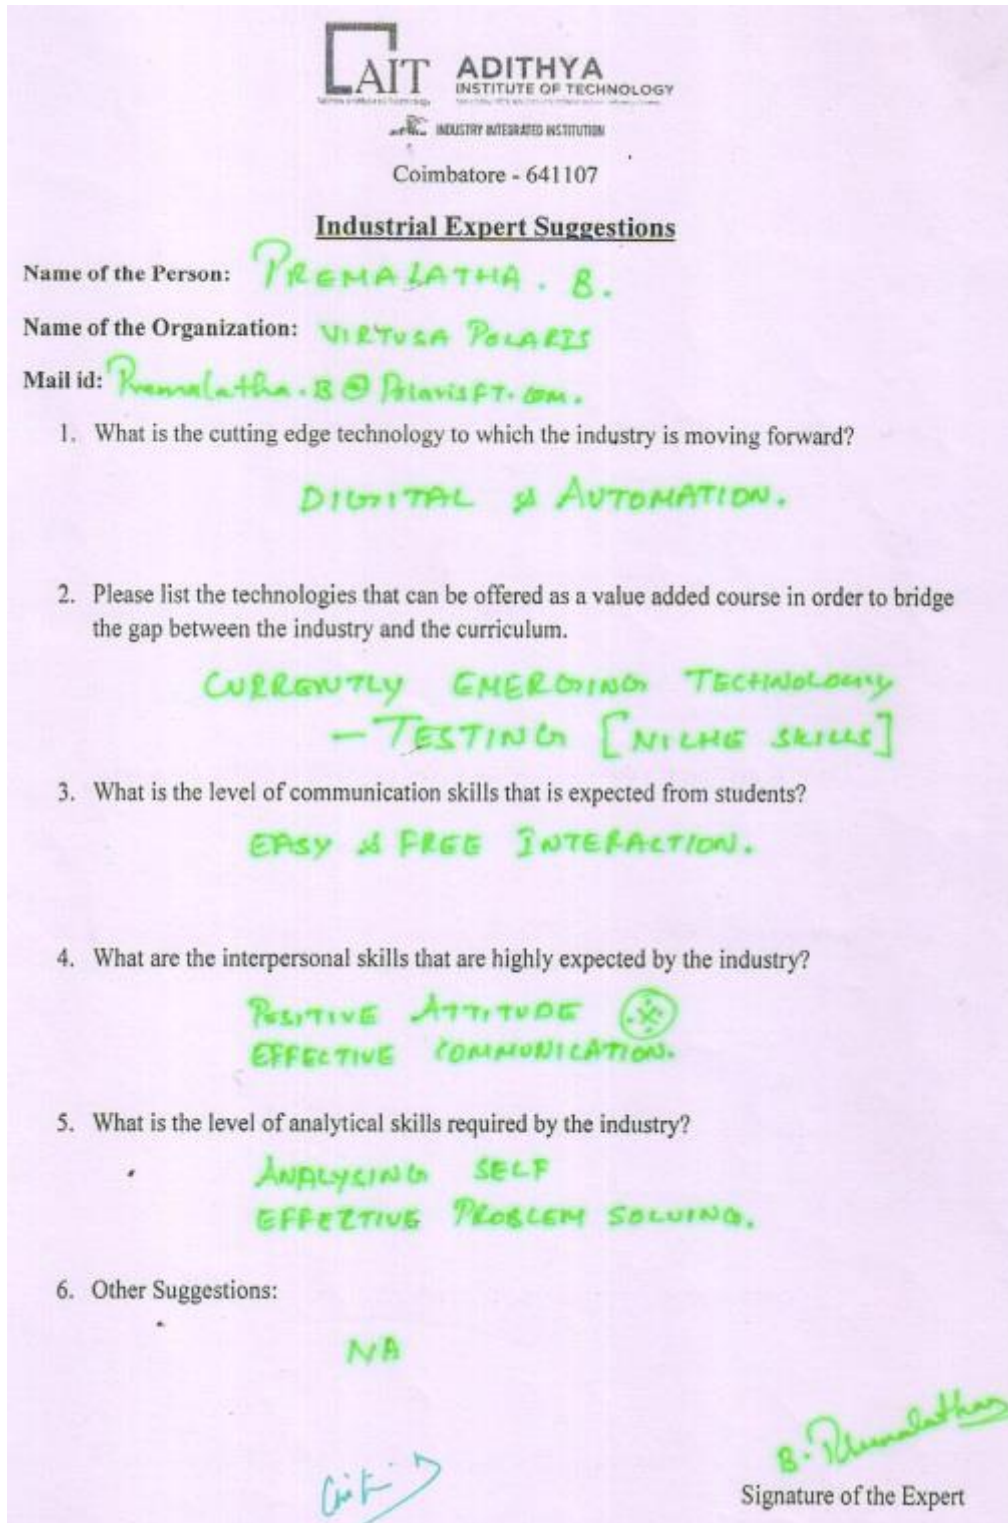 AIT ADITHYA
INSTITUTE OF TECHNOLOGY
INDUSTRY INTEGRATED INSTITUTION
Coimbatore - 641107
Industrial Expert Suggestions
Name of the Person: PREMALATHA . B.
Name of the Organization: VIRTUSA POLARIS
Mail id: Premalatha.B@PolarisFT.com.
1. What is the cutting edge technology to which the industry is moving forward?
DIGITAL & AUTOMATION.
2. Please list the technologies that can be offered as a value added course in order to bridge
the gap between the industry and the curriculum.
CURRENTLY EMERGING TECHNOLOGY
- TESTING [NICHE SKILLS]
3. What is the level of communication skills that is expected from students?
EASY & FREE INTERACTION.
4. What are the interpersonal skills that are highly expected by the industry?
POSITIVE ATTITUDE
EFFECTIVE COMMUNICATION.
5. What is the level of analytical skills required by the industry?
ANALYSING SELF
EFFECTIVE PROBLEM SOLVING.
6. Other Suggestions:
NA
B. Premalatha
Signature of the Expert